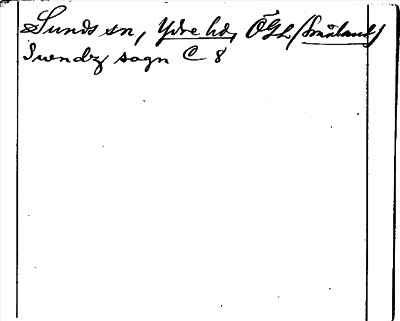 Sunds sn, Ydre hd, ÖGL (Småland)
Swndz sogn C 8